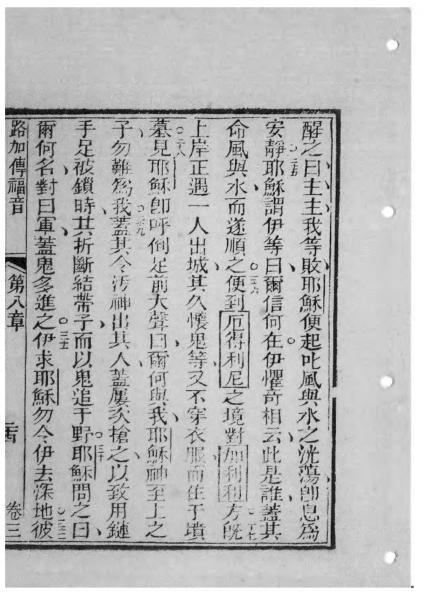 醒之曰主主我等敗耶穌便起叱風與水之洸蕩卽息爲
安靜耶穌謂伊等曰爾信何在伊懼奇相云此是誰蓋其
命風與水而遂順之便到厄得利尼之境對加利利方旣
上岸正遇一人出城其久懷鬼等又不穿衣服而生于墳
墓見耶穌卽呼倒足前大聲曰爾何與我耶穌神至上之
子勿難爲我蓋其令污神出其人蓋屢次搶之以致用鏈
手足被鎖時其折斷結帶子而以鬼追于野耶穌問之曰
爾何名對曰軍蓋鬼多進之伊求耶穌勿令伊去深地彼
路加傳福音 第八章 卷三